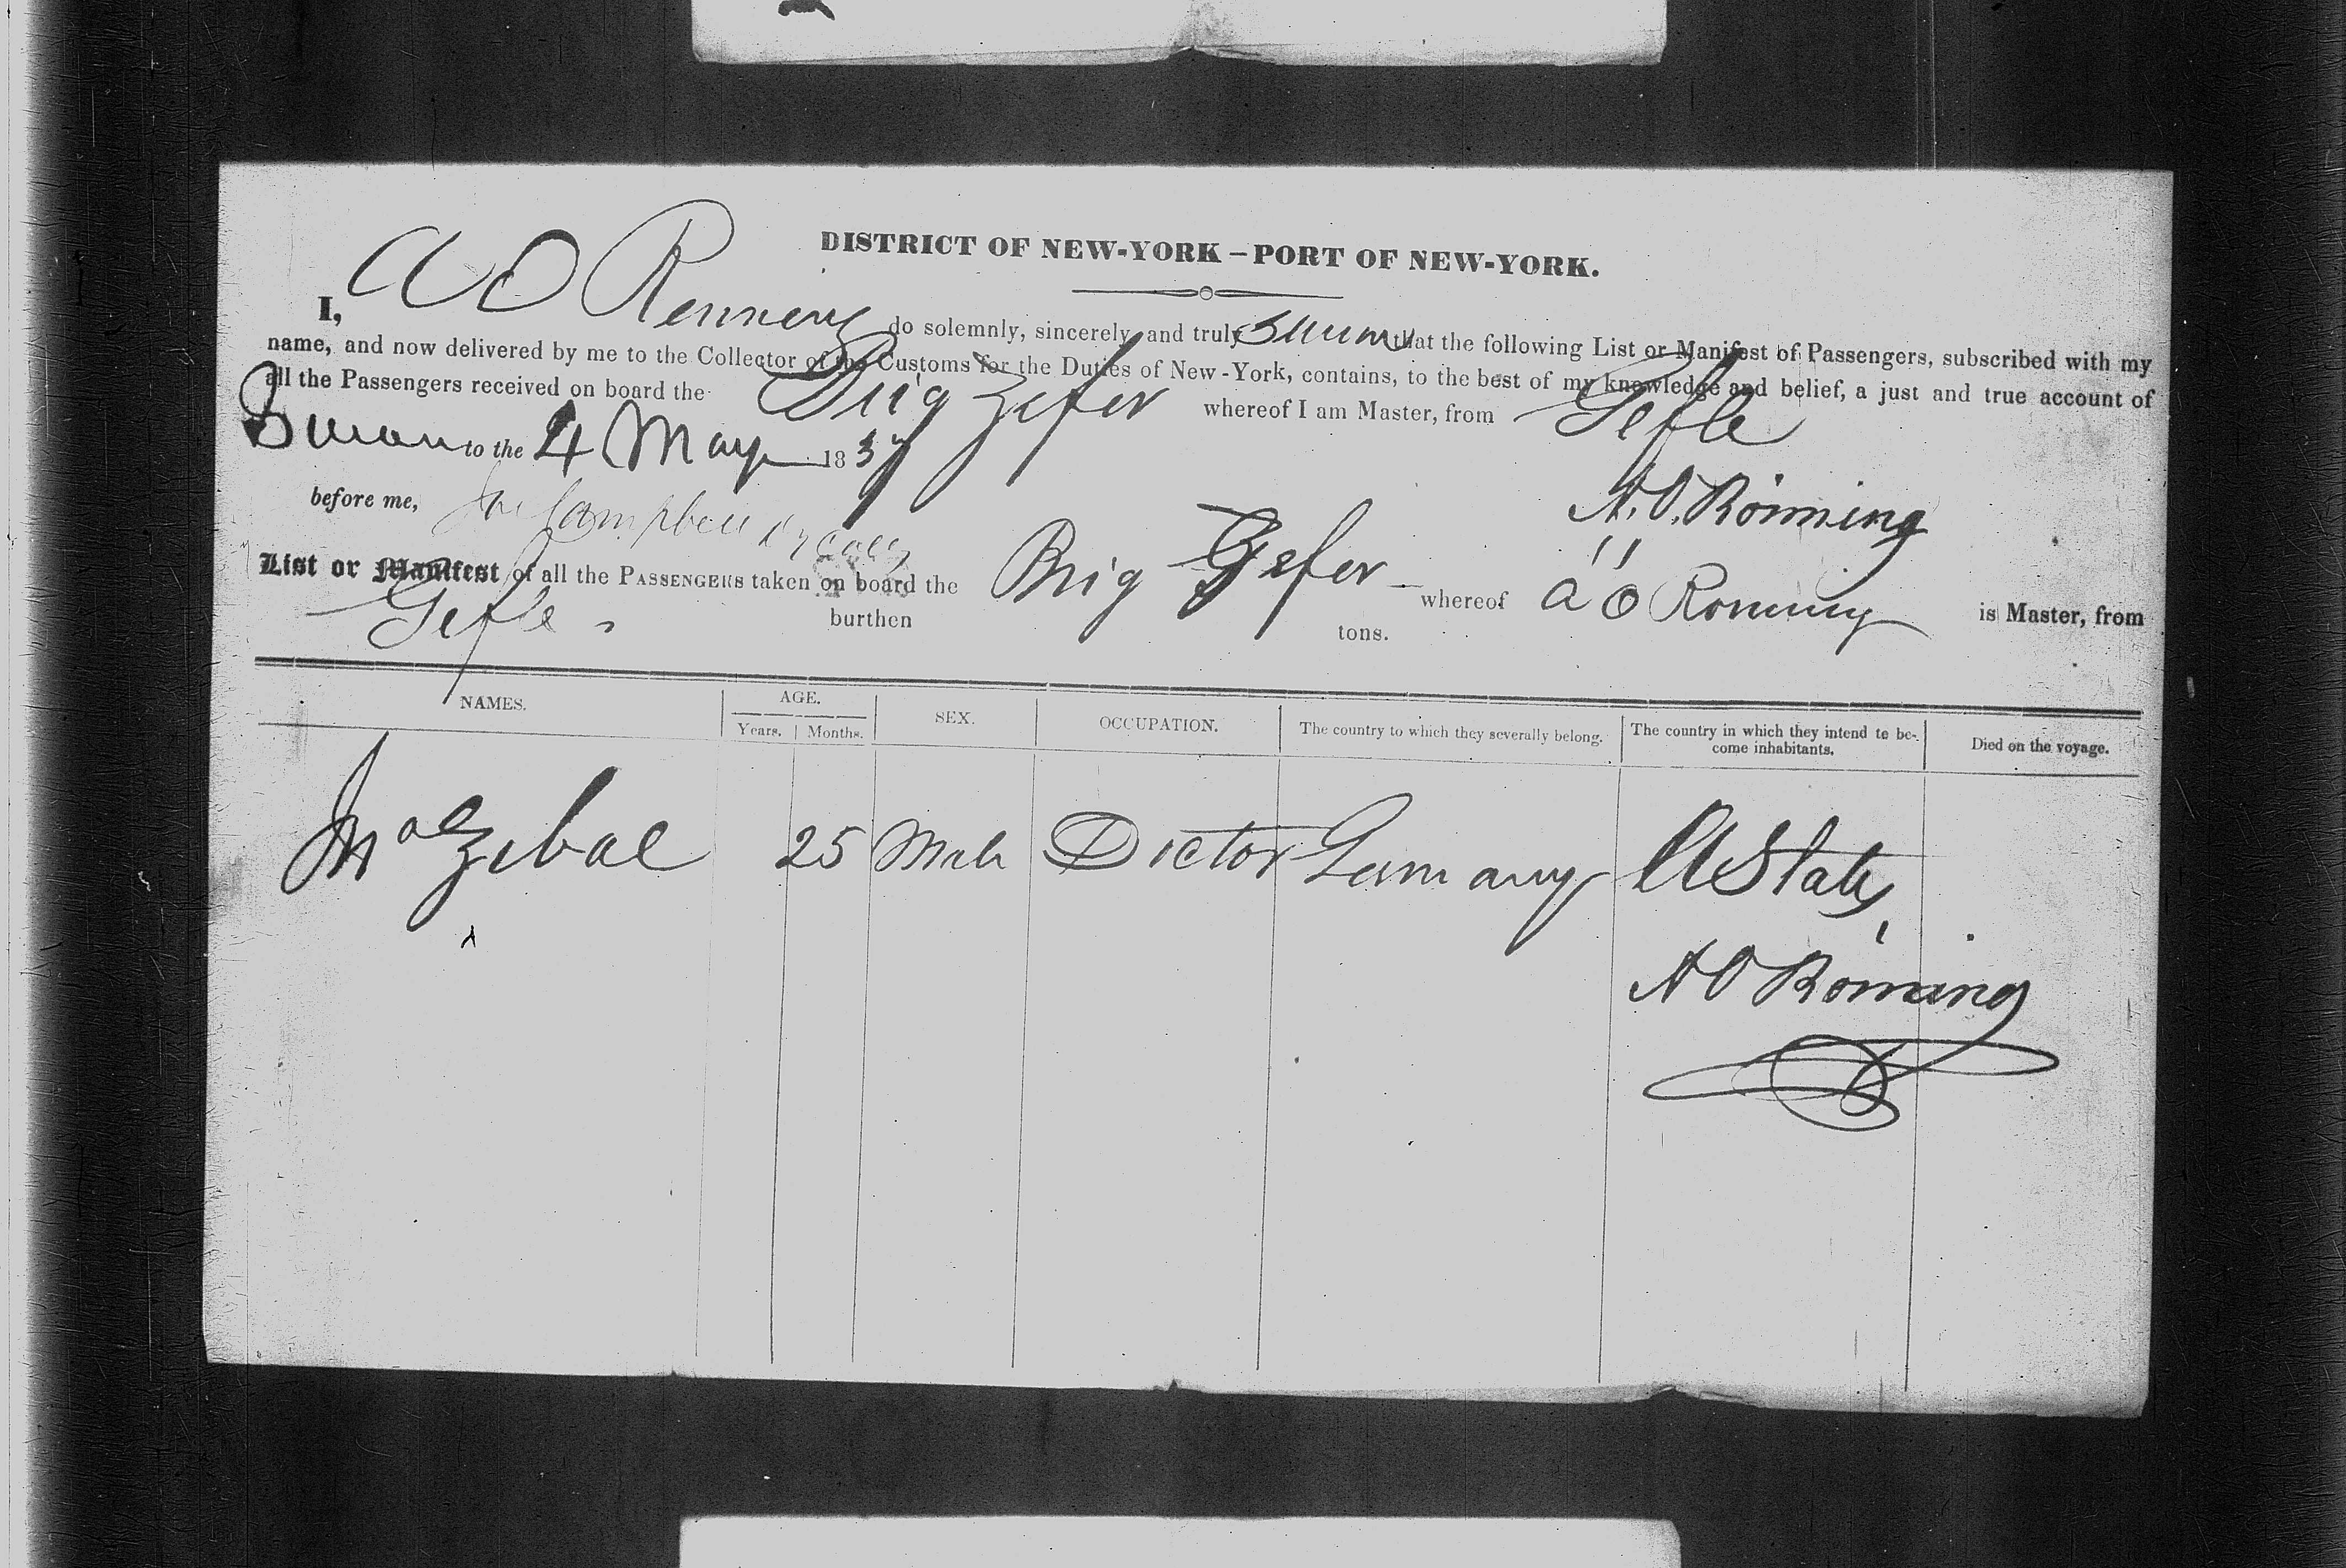 DISTRICT OF NEW-YORK – PORT OF NEW-YORK.
I, A O Renning do solemnly, sincerely and truly swear that the following List or Manifest of Passengers, subscribed with my
name, and now delivered by me to the Collector of the Customs for the Duties of New-York, contains, to the best of my knowledge and belief, a just and true account of
all the Passengers received on board the Brig Gefer whereof I am Master, from Gefle
Sworn to the 4 May 1837
A. O. Rönning
before me, Campbell
List or Manifest of all the PASSENGERS taken on board the Brig Gefer whereof A O Ronning is Master, from
Gefle burthen tons.
NAMES. AGE. SEX. OCCUPATION. The country to which they severally belong. The country in which they intend te be-
come inhabitants. Died on the voyage.
Years. Months.
25 Male Doctor Germany U States
A O Rönning